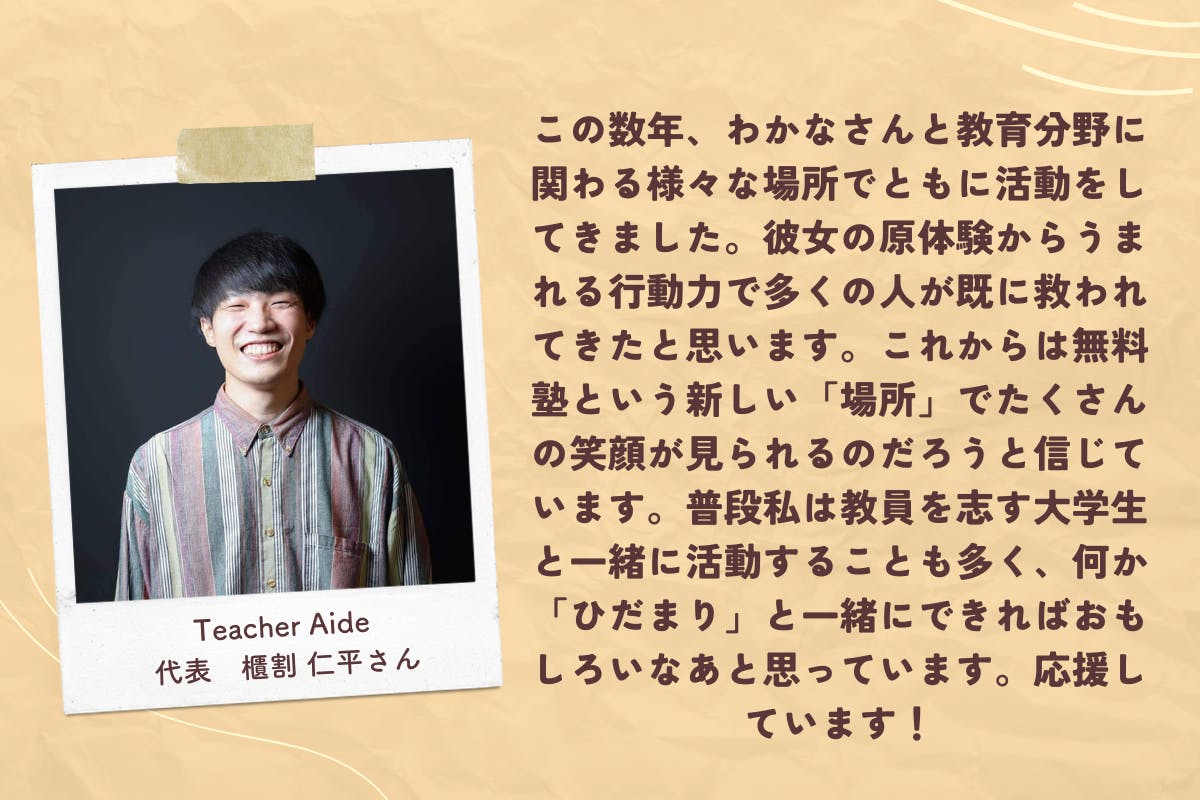 この数年、わかなさんと教育分野に
関わる様々な場所でともに活動をし
てきました。彼女の原体験からうま
れる行動力で多くの人が既に救われ
てきたと思います。これからは無料
塾という新しい「場所」でたくさん
の笑顔が見られるのだろうと信じて
います。普段私は教員を志す大学生
と一緒に活動することも多く、何か
「ひだまり」と一緒にできればおも
しろいなあと思っています。応援し
ています！
Teacher Aide
代表　櫃割 仁平さん